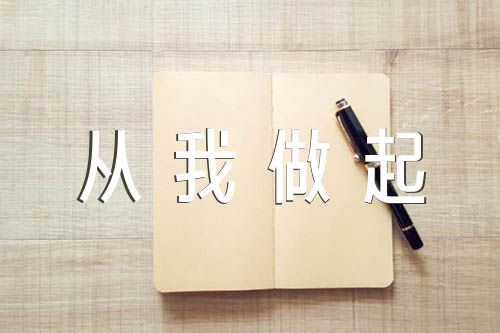 从我做起